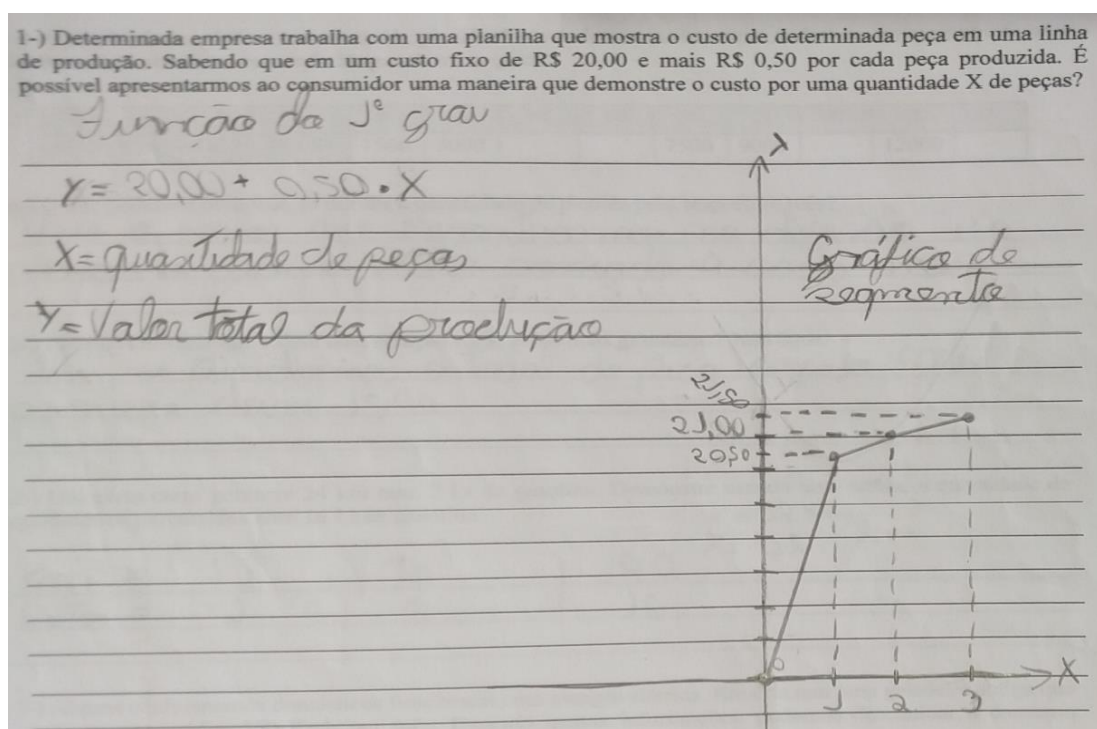 1-) Determinada empresa trabalha com uma planilha que mostra o custo de determinada peça em uma linha
de produção. Sabendo que em um custo fixo de R$ 20,00 e mais R$ 0,50 por cada peça produzida. É
possível apresentarmos ao consumidor uma maneira que demonstre o custo por uma quantidade X de peças?
Função do 1º grau
Y = 20,00 + 0,50 . X
X = quantidade de peças
Y = Valor total da produção
Y
Gráfico de
segmento
21,50
21,00
20,50
0
X
1 2 3